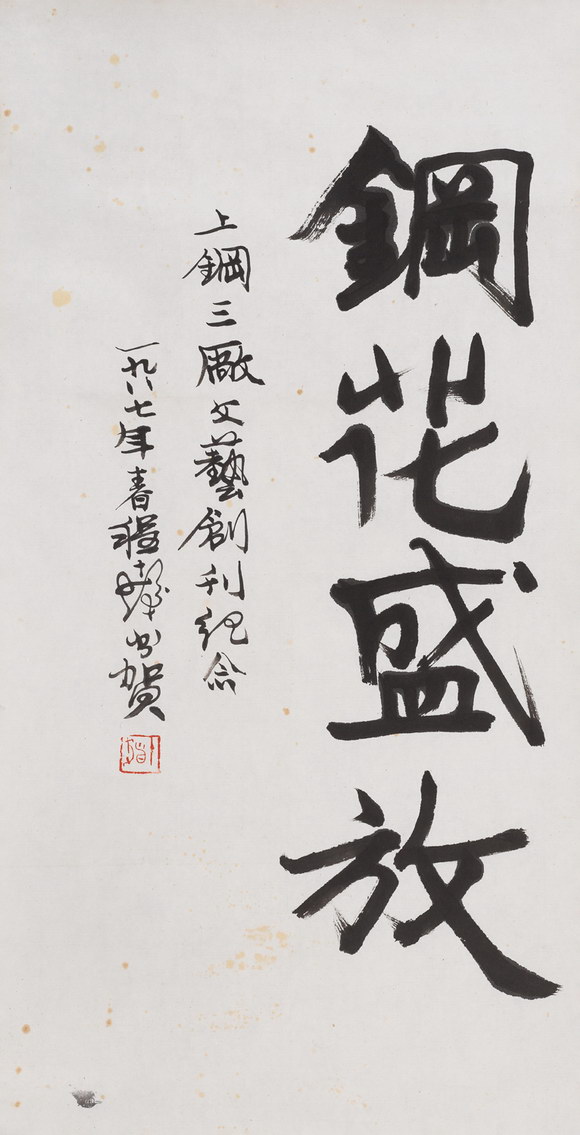 鋼花盛放
上鋼三廠文藝創刊紀念
一九八七年春程十髮書賀